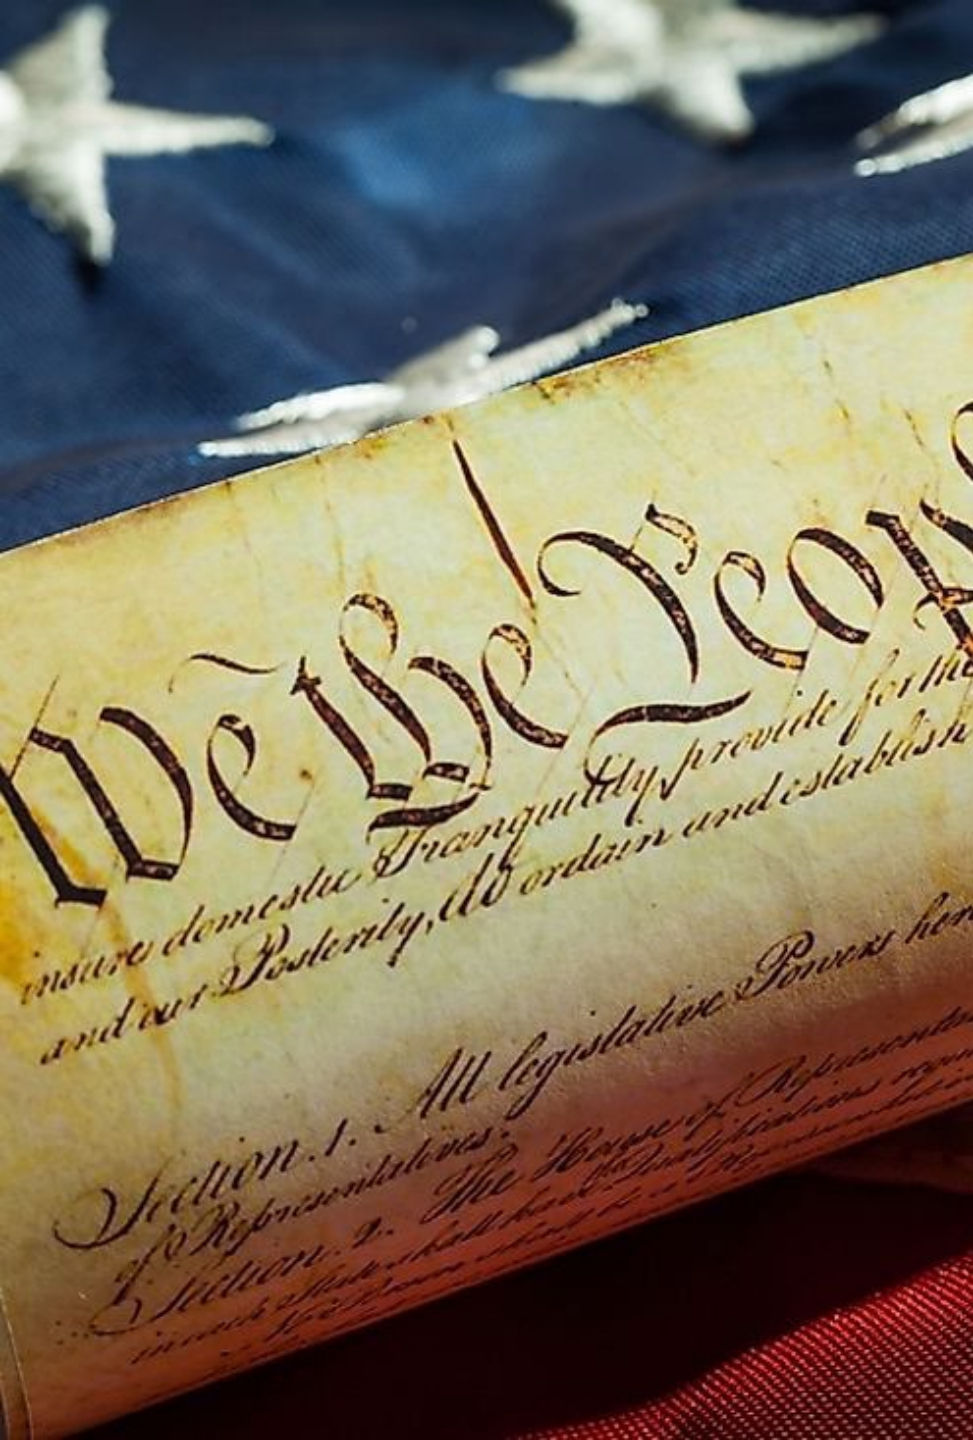 We the Peop
insure domestic Tranquility, provide for the
and our Posterity, do ordain and establish
Section. 1. All legislative Powers her
of Representatives.
Section. 2. The House of Representa
in each State shall have the Qualifications requi